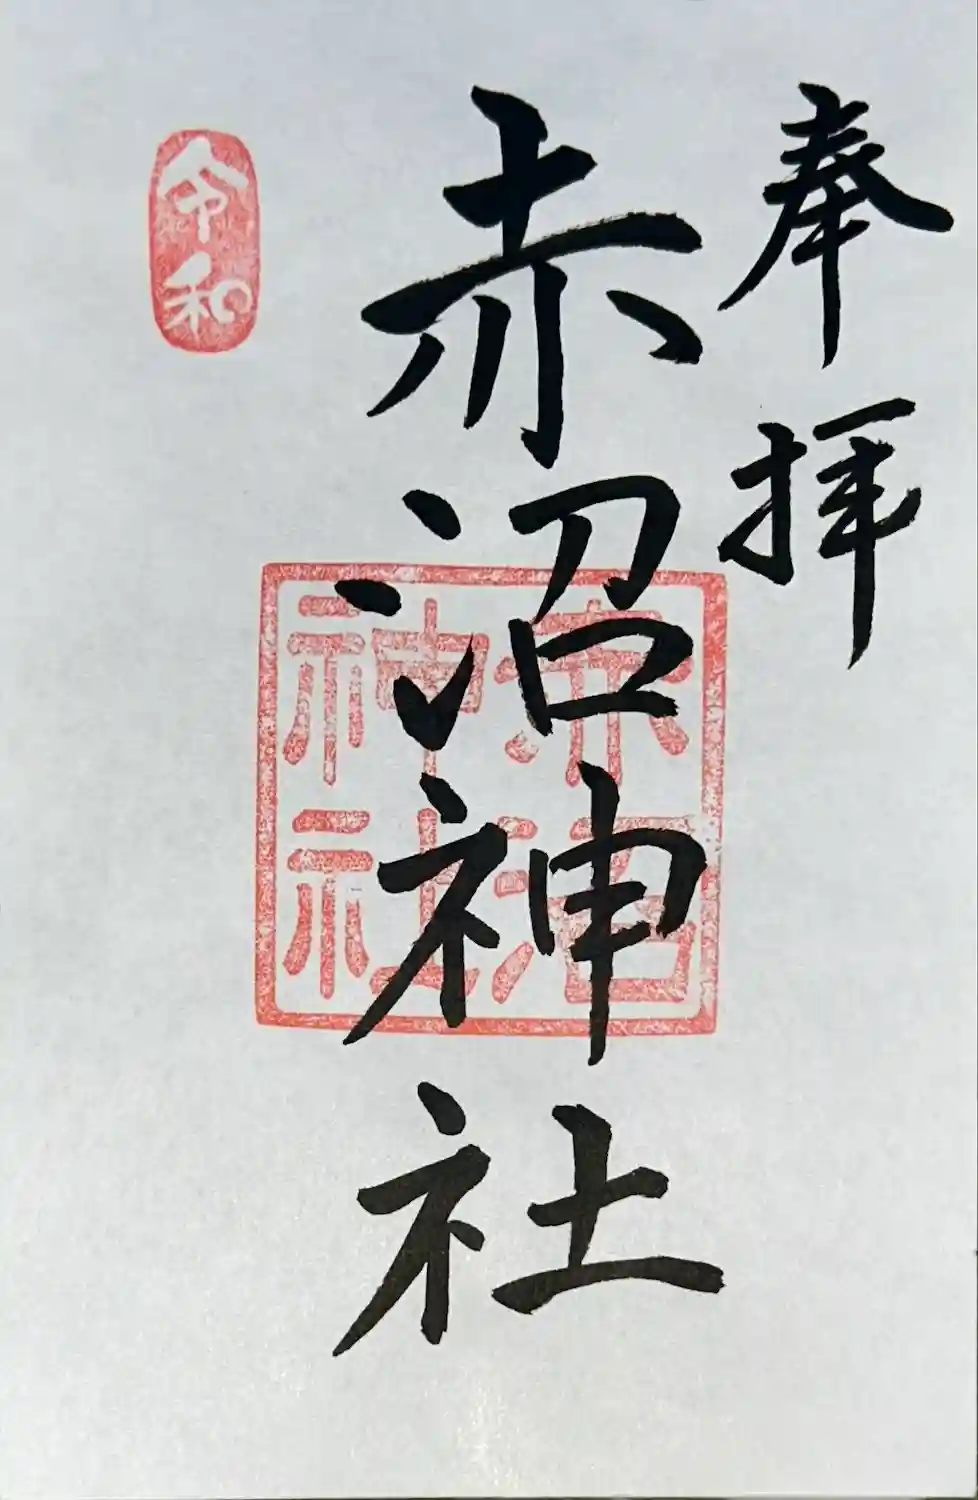 奉拝
赤沼神社
令和
赤沼
神社